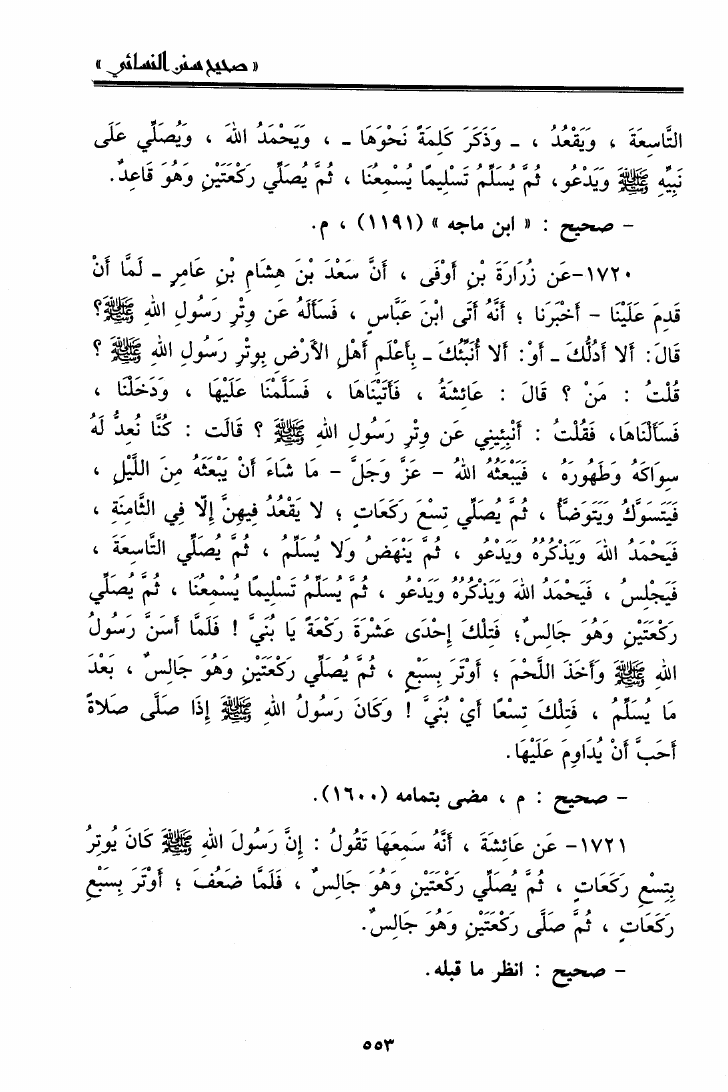 « صحيح سنن النسائي »
التَّاسِعَةَ ، وَيَقْعُدُ ، ـ وَذَكَرَ كَلِمَةً نَحْوَهَا ـ ، وَيَحْمَدُ اللهَ ، وَيُصَلِّي عَلَى
نَبِيِّهِ ﷺ وَيَدْعُو، ثُمَّ يُسَلِّمُ تَسْلِيمًا يُسْمِعُنَا ، ثُمَّ يُصَلِّي رَكْعَتَيْنِ وَهُوَ قَاعِدٌ.
– صحيح : « ابن ماجه » (١١٩١) ، م.
١٧٢٠–عَن زُرَارَةَ بْنِ أَوْفَى ، أَنَّ سَعْدَ بْنَ هِشَامِ بْنِ عَامِرٍ ـ لَمَّا أَنْ
قَدِمَ عَلَيْنَا – أَخْبَرَنَا ؛ أَنَّهُ أَتَى ابْنَ عَبَّاسٍ ، فَسَأَلَهُ عَن وِتْرِ رَسُولِ اللهِ ﷺ؟
قَالَ: أَلا أَدُلُّكَ ـ أَوْ: أَلا أُنَبِّئُكَ ـ بِأَعْلَمِ أَهْلِ الأَرْضِ بِوِتْرِ رَسُولِ اللهِ ﷺ ؟
قُلْتُ : مَنْ ؟ قَالَ : عَائِشَةُ ، فَأَتَيْنَاهَا ، فَسَلَّمْنَا عَلَيْهَا ، وَدَخَلْنَا ،
فَسَأَلْنَاهَا، فَقُلْتُ : أَنْبِئِينِي عَن وِتْرِ رَسُولِ اللهِ ﷺ ؟ قَالَت : كُنَّا نُعِدُّ لَهُ
سِوَاكَهُ وَطَهُورَهُ ، فَيَبْعَثُهُ اللهُ – عَزَّ وَجَلَّ – مَا شَاءَ أَنْ يَبْعَثَهُ مِنَ اللَّيْلِ ،
فَيَتَسَوَّكُ وَيَتَوَضَّأُ ، ثُمَّ يُصَلِّي تِسْعَ رَكَعَاتٍ ؛ لا يَقْعُدُ فِيهِنَّ إِلّا فِي الثَّامِنَةِ ،
فَيَحْمَدُ اللهَ وَيَذْكُرُهُ وَيَدْعُو ، ثُمَّ يَنْهَضُ وَلا يُسَلِّمُ ، ثُمَّ يُصَلِّي التَّاسِعَةَ ،
فَيَجْلِسُ ، فَيَحْمَدُ اللهَ وَيَذْكُرُهُ وَيَدْعُو ، ثُمَّ يُسَلِّمُ تَسْلِيمًا يُسْمِعُنَا ، ثُمَّ يُصَلِّي
رَكْعَتَيْنِ وَهُوَ جَالِسٌ؛ فَتِلْكَ إِحْدَى عَشْرَةَ رَكْعَةً يَا بُنَيَّ ! فَلَمَّا أَسَنَّ رَسُولُ
اللهِ ﷺ وَأَخَذَ اللَّحْمَ ؛ أَوْتَرَ بِسَبْعٍ ، ثُمَّ يُصَلِّي رَكْعَتَيْنِ وَهُوَ جَالِسٌ ، بَعْدَ
مَا يُسَلِّمُ ، فَتِلْكَ تِسْعًا أَيْ بُنَيَّ ! وَكَانَ رَسُولُ اللهِ ﷺ إِذَا صَلَّى صَلاةً
أَحَبَّ أَنْ يُدَاوِمَ عَلَيْهَا.
– صحيح : م ، مضى بتمامه (١٦٠٠).
١٧٢١– عَن عَائِشَةَ ، أَنَّهُ سَمِعَهَا تَقُولُ : إِنَّ رَسُولَ اللهِ ﷺ كَانَ يُوتِرُ
بِتِسْعِ رَكَعَاتٍ ، ثُمَّ يُصَلِّي رَكْعَتَيْنِ وَهُوَ جَالِسٌ ، فَلَمَّا ضَعُفَ ؛ أَوْتَرَ بِسَبْعِ
رَكَعَاتٍ ، ثُمَّ صَلَّى رَكْعَتَيْنِ وَهُوَ جَالِسٌ.
– صحيح : انظر ما قبله.
٥٥٣